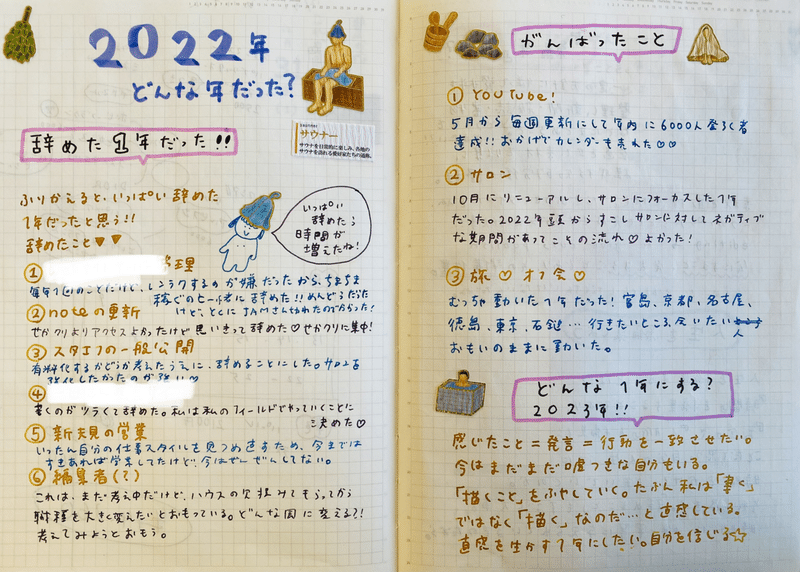 2022年
どんな年だった?
サウナー
サウナを日常的に楽しみ、各地の
サウナを訪れる愛好家たちの通称。
辞めた1年だった!!
ふりかえると、いっぱい辞めた
1年だったと思う!!
辞めたこと♥♥
いっぱい
辞めたら
時間が
増えたね!
① 理
毎年1回のことだけど、レンラクするのが嫌だったから、ちまちま
稼ぐのヒー 者に辞めた!!めんどうだった
けど、とくにJAMさん切れたのでかった!
② noteの更新
せかクリよりアクセスよかったけど思いきって辞めた♡せかクリに集中!
③ スタエフの一般公開
有料化するかどうか考えたうえに、辞めることにした。サロンを
強化したかったのが強い♡
④
書くのがツラくて辞めた。私は私のフィールドでやっていくことに
決めた♡
⑤ 新規の営業
いったん自分の仕事スタイルを見つめ直すため、今までは
すきあれば営業してたけど、今はぜんぜんしてない。
⑥ 編集者(?)
これは、まだ考え中だけど、ハウスの 抜みてもらってから
職種を大きく変えたいとおもっている。どんな風に変える?!
考えてみようとおもう。
がんばったこと
① YouTube!
5月から毎週更新にして年内に6000人登ろく者
達成!!おかげでカレンダーも売れた♡♡
② サロン
10月にリニューアルし、サロンにフォーカスした1年
だった。2022年頭からすこしサロンに対してネガティブ
な期間があってこその流れ♡よかった!
③ 旅♡オフ会♡
むっちゃ動いた1年だった!宮島、京都、名古屋、
徳島、東京、石鎚…行きたいところ、会いたい
人
おもいのままに動いた。
どんな1年にする?
2023年!!
感じたこと=発言=行動を一致させたい。
今はまだまだ嘘つきな自分もいる。
「描くこと」をふやしていく。たぶん私は「書く」
ではなく「描く」なのだ…と直感している。
直感を生かす1年にしたい。自分を信じる☆